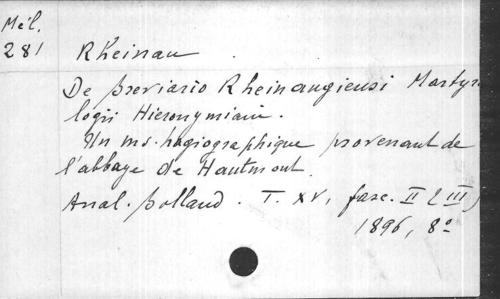 Mél.
281
Rheinau
De breviario Rheinaugiensi Martyro
logii Hieronymiani.
Un ms. hagiographique provenant de
l'abbaye de Hautmont.
Anal. bolland. T. XV, fasc. II & III,
1896, 8º